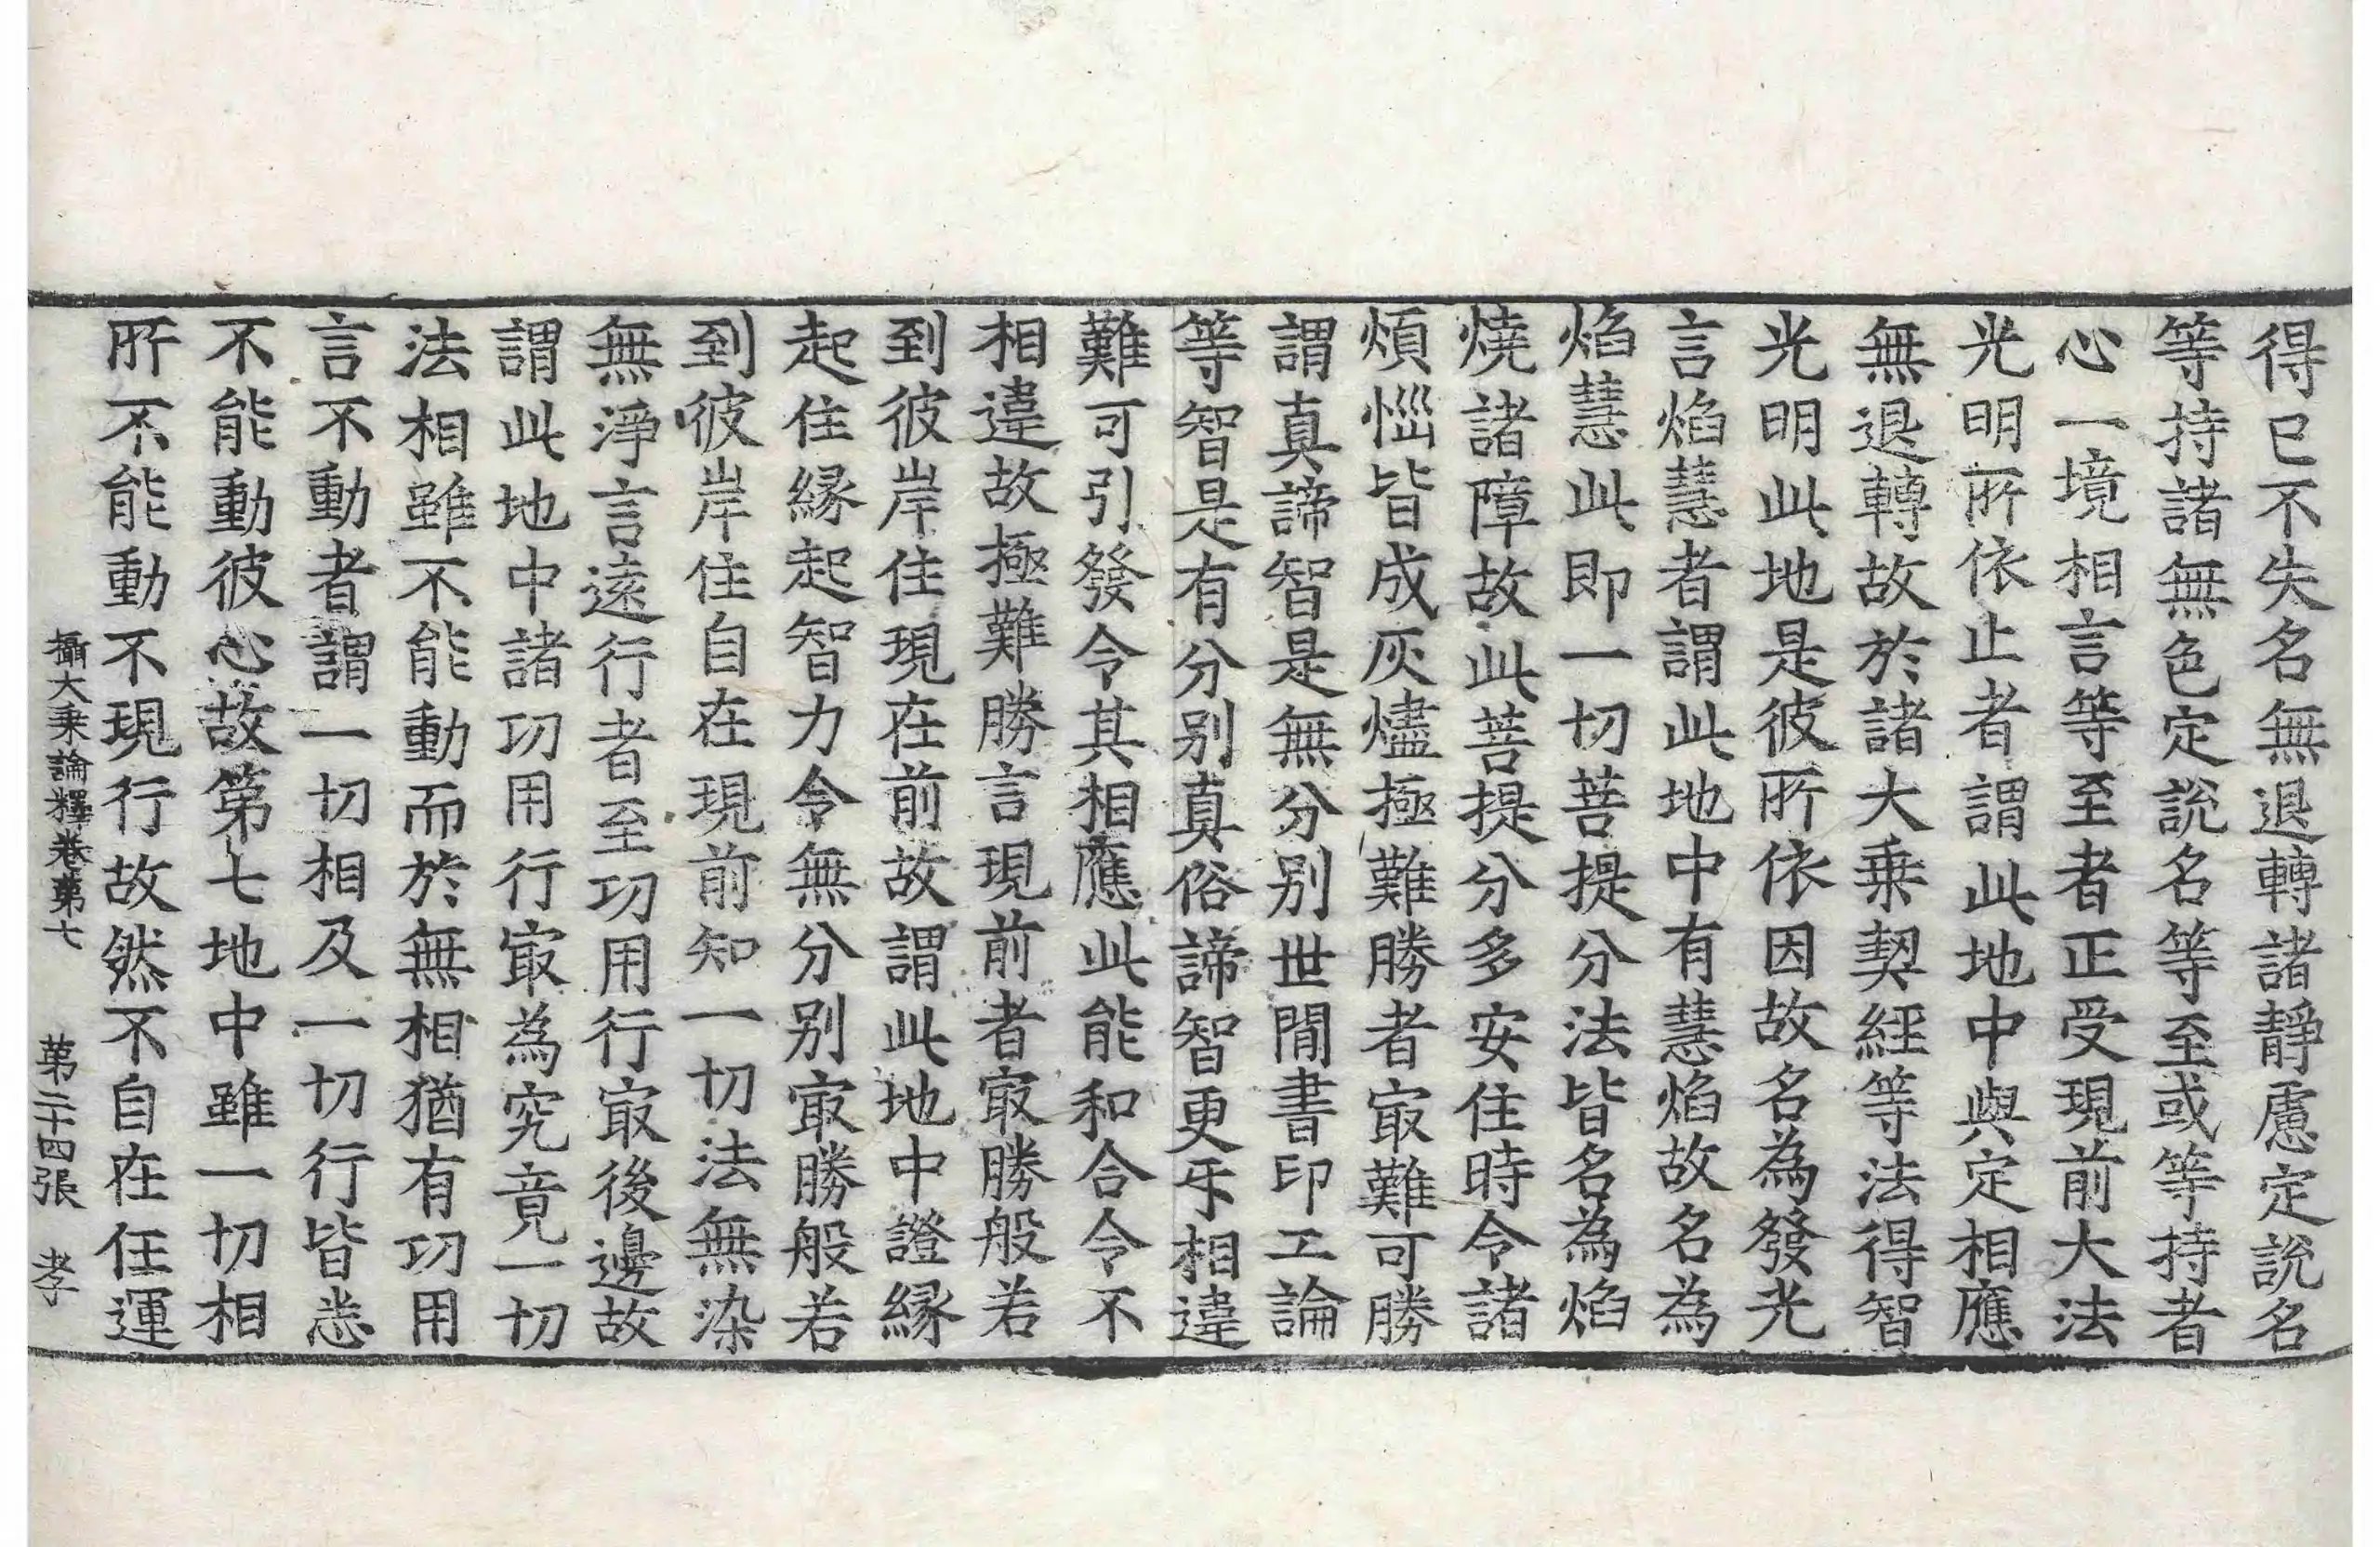 得已不失名無退轉諸靜慮定說名
等持諸無色定說名等至或等持者
心一境相言等至者正受現前大法
光明所依止者謂此地中與定相應
無退轉故於諸大乗契經等法得智
光明此地是彼所依因故名為發光
言焰慧者謂此地中有慧焰故名為
焰慧此即一切菩提分法皆名為焰
燒諸障故此菩提分多安住時令諸
煩惱皆成灰燼極難勝者㝡難可勝
謂真諦智是無分別世間書印工論
等智是有分別真俗諦智更㸦相違
難可引發令其相應此能和合令不
相違故極難勝言現前者㝡勝般若
到彼岸住現在前故謂此地中證縁
起住縁起智力令無分別㝡勝般若
到彼岸住自在現前知一切法無染
無淨言遠行者至功用行㝡後邊故
謂此地中諸功用行㝡為究竟一切
法相雖不能動而於無相猶有功用
言不動者謂一切相及一切行皆悉
不能動彼心故第七地中雖一切相
所不能動不現行故然不自在任運
攝大乗論釋卷第七　第二十四張　孝